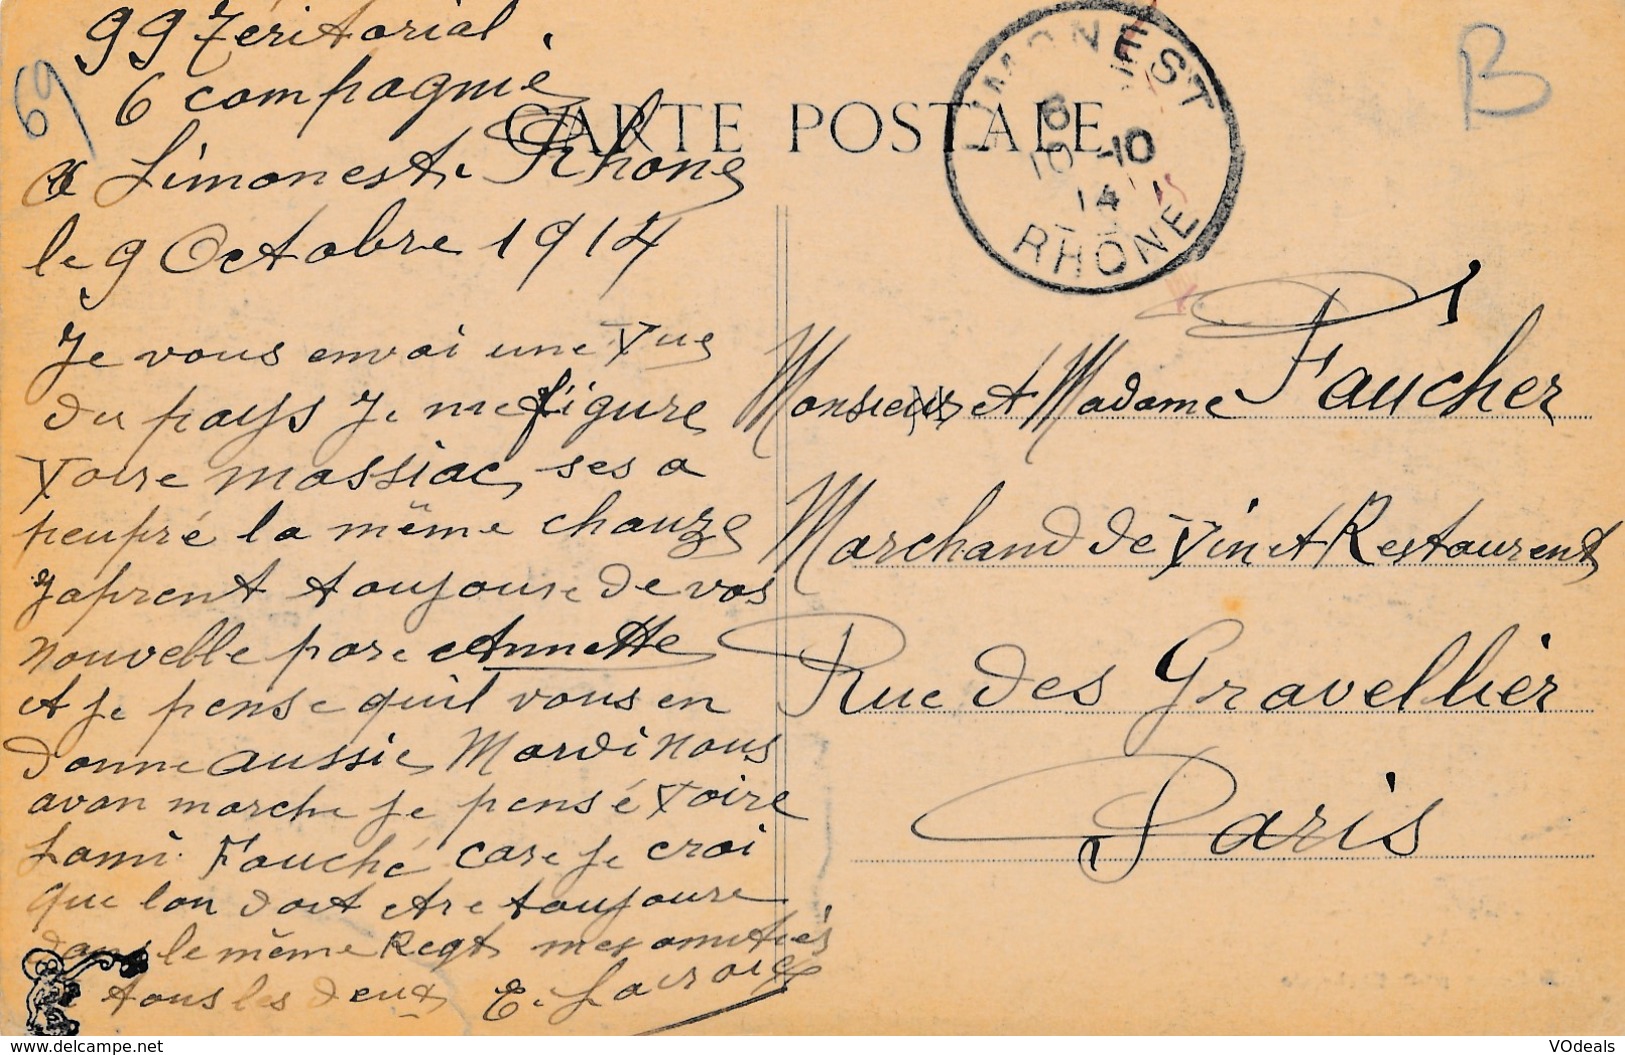 99 Téritorial.
6 compagnie
a Limonest. Rhone
le 9 Octobre 1914
Je vous envoi une Vue
du pays Je me figure
Voire Massiac, ses a
peupré la même chauze
J'aprent toujoure de vos
nouvelle pare Annette
et je pense quil vous en
donne aussie Mardi nous
avon marche je pensé Voire
Lami Fauché care je croi
que lon doit etre toujoure
dans le même Regt mes amitiés
a tous les deux E. Lacroix
69
CARTE POSTALE
LIMONEST
8
10 -10
14
RHONE
B
Monsieur et Madame Faucher
Marchand de Vin et Restaurent
Rue des Gravellier
Paris
www.delcampe.net
VOdeals